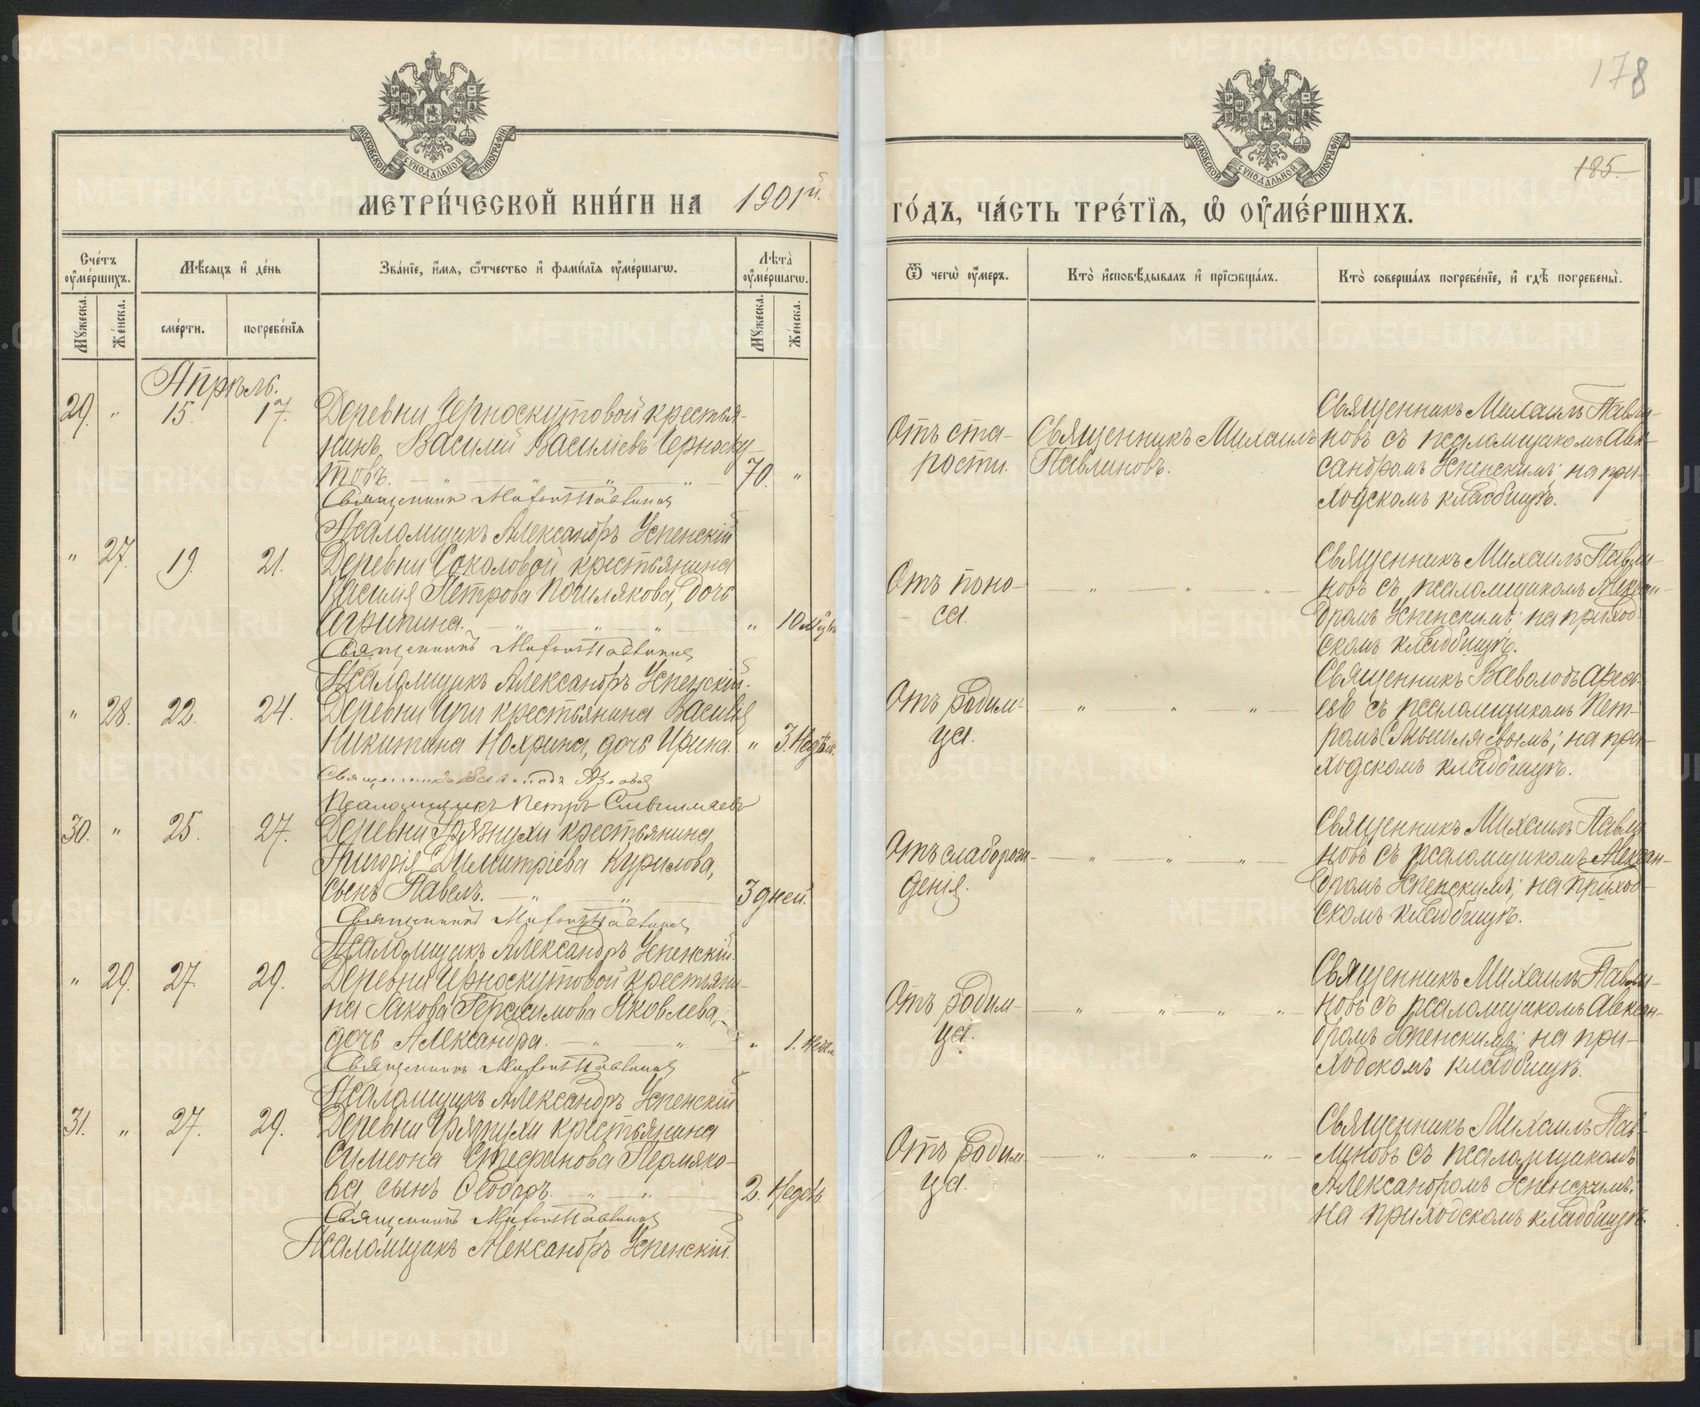 178
185.
МОСКОВСКОЙ СѴНОДАЛЬНОЙ ТИПОГРАФІИ
МОСКОВСКОЙ СѴНОДАЛЬНОЙ ТИПОГРАФІИ
МЕТРИ́ЧЕСКОЙ КНИ́ГИ НА 1901й. ГО́ДЪ, ЧА́СТЬ ТРЕ́ТІѦ, Ѡ ОУМЕ́РШИХЪ.
Сче́тъ оуме́ршихъ.
Мѣ́сяцъ и де́нь
Зва́ніе, и́мя, ѻ́тчество и фами́лія оуме́ршагѡ.
Лѣта̀ оуме́ршагѡ.
Ѿ чегѡ̀ оу́меръ.
Кто̀ исповѣ́дывалъ и пріѡбща́лъ.
Кто̀ соверша́лъ погребе́ніе, и гдѣ̀ погребены̀.
Мꙋжеска.
Же́нска.
сме́рти.
погребе́нія
Мꙋжеска.
Же́нска.
Апрѣль.
29. " 15. 17.
Деревни Черноскутовой крестья-
нинъ Василій Васильевъ Черноску-
товъ. 70. "
Священникъ Михаилъ Павлиновъ
Псаломщикъ Александръ Успенскій
Отъ ста-
рости.
Священникъ Михаилъ
Павлиновъ.
Священникъ Михаилъ Павли-
новъ съ псаломщикомъ Алек-
сандромъ Успенскимъ; на при-
ходскомъ кладбищѣ.
" 27. 19. 21.
Деревни Соколовой крестьянина
Василія Петрова дочь
Агрипина. " 10
Священникъ Михаилъ Павлиновъ
Псаломщикъ Александръ Успенскій.
Отъ поно-
са.
Священникъ Михаилъ Павли-
новъ съ псаломщикомъ Алексан-
дромъ Успенскимъ; на приход-
скомъ кладбищѣ.
" 28. 22. 24.
Деревни крестьянина Василія
Никитина дочь Ирина. " 3. Недѣл.
Священникъ Всеволодъ
Псаломщикъ Петръ
Отъ родим-
ца.
Священникъ Всеволодъ
съ псаломщикомъ Пет-
ромъ на при-
ходскомъ кладбищѣ.
30. " 25. 27.
Деревни Грязнухи крестьянина
Григорія Димитріева Курилова,
сынъ Павелъ. 3 дней.
Священникъ Михаилъ Павлиновъ
Псаломщикъ Александръ Успенскій.
Отъ слаборож-
денія.
Священникъ Михаилъ Павли-
новъ съ псаломщикомъ Алексан-
дромъ Успенскимъ; на приход-
скомъ кладбищѣ.
" 29. 27. 29.
Деревни Черноскутовой крестьяни-
на Іакова Герасимова Яковлева,
дочь Александра. " 1.
Священникъ Михаилъ Павлиновъ
Псаломщикъ Александръ Успенскій
Отъ родим-
ца.
Священникъ Михаилъ Павли-
новъ съ псаломщикомъ Алексан-
дромъ Успенскимъ; на при-
ходскомъ кладбищѣ.
31. " 27. 29.
Деревни Грязнухи крестьянина
Симеона Стефанова Пермяко-
ва, сынъ Ѳеодоръ. 2. Недѣль
Священникъ Михаилъ Павлиновъ
Псаломщикъ Александръ Успенскій.
Отъ родим-
ца.
Священникъ Михаилъ Пав-
линовъ съ псаломщикомъ
Александромъ Успенскимъ;
на приходскомъ кладбищѣ.
METRIKI.GASO-URAL.RU